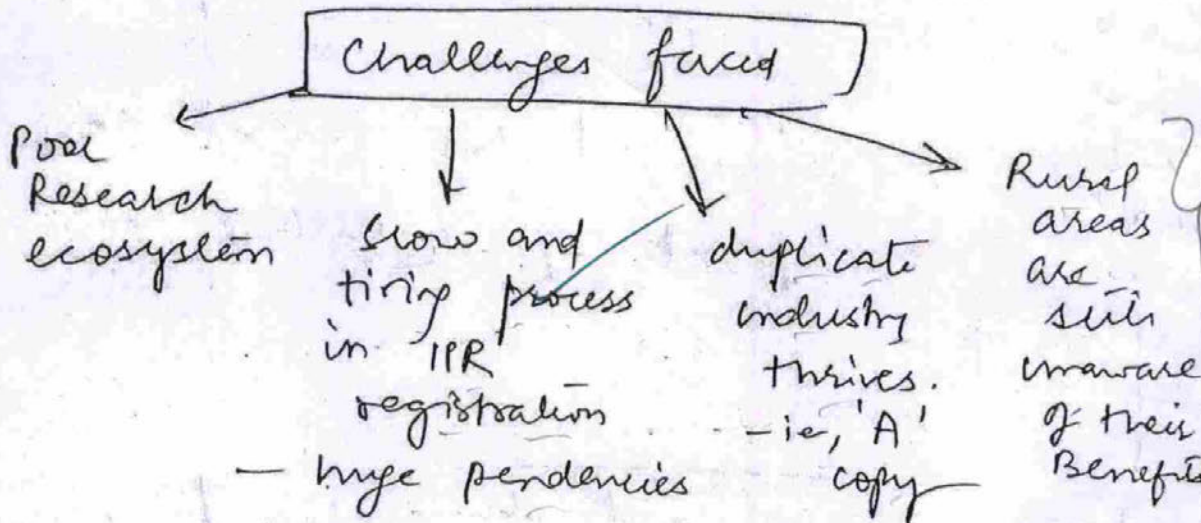 Challenges faced
Poor
Research
ecosystem
Slow and
tiring process
in IPR
registration
— huge pendencies
duplicate
industry
thrives.
– ie, 'A'
copy
Rural
areas
are
still
unaware
of their
Benefits